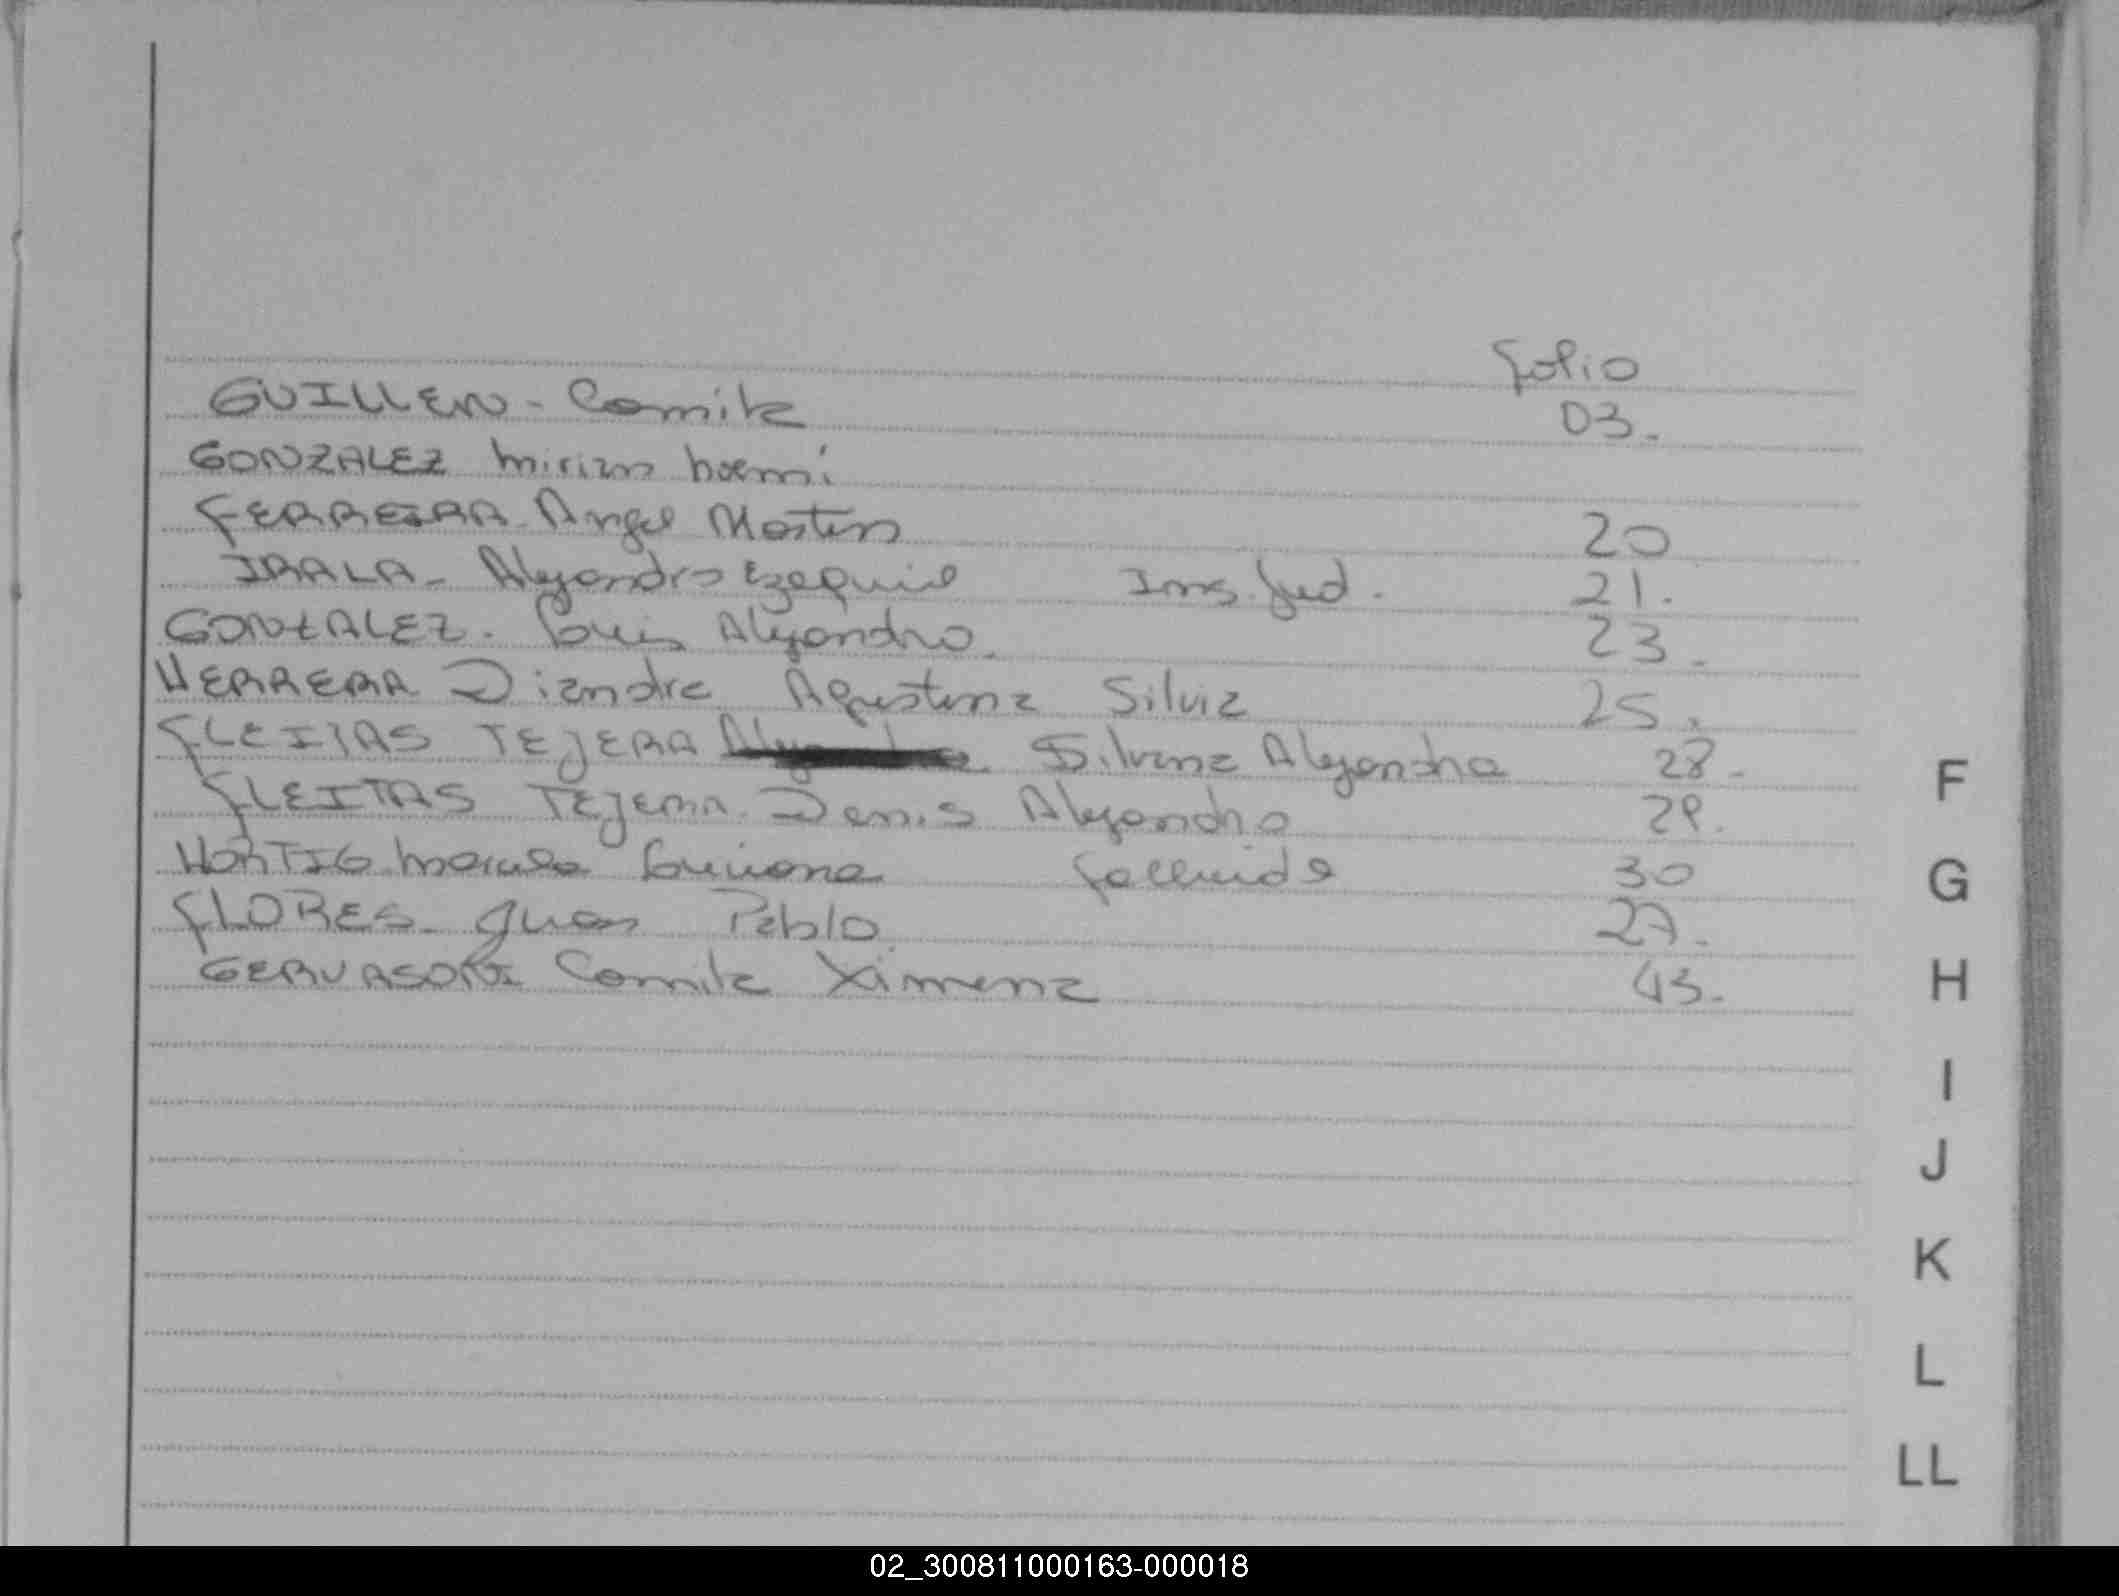 folio
GUILLEN - Camila 03.
GONZALEZ Miriam Noemí
FERREIRA Angel Martin 20
IRALA - Alejandro Ezequiel Ins. Jud. 21.
GONZALEZ. Luis Alejandro. 23.
HERRERA Diandra Agustina Silvia 25.
FLEITAS TEJERA Silvana Alejandra 28.
FLEITAS TEJERA. Denis Alejandro 29.
HORTIG Luciana fallecida 30
FLORES - Juan Pablo. 27.
GERVASONI Camila Ximena 43.
F
G
H
I
J
K
L
LL
02_300811000163-000018